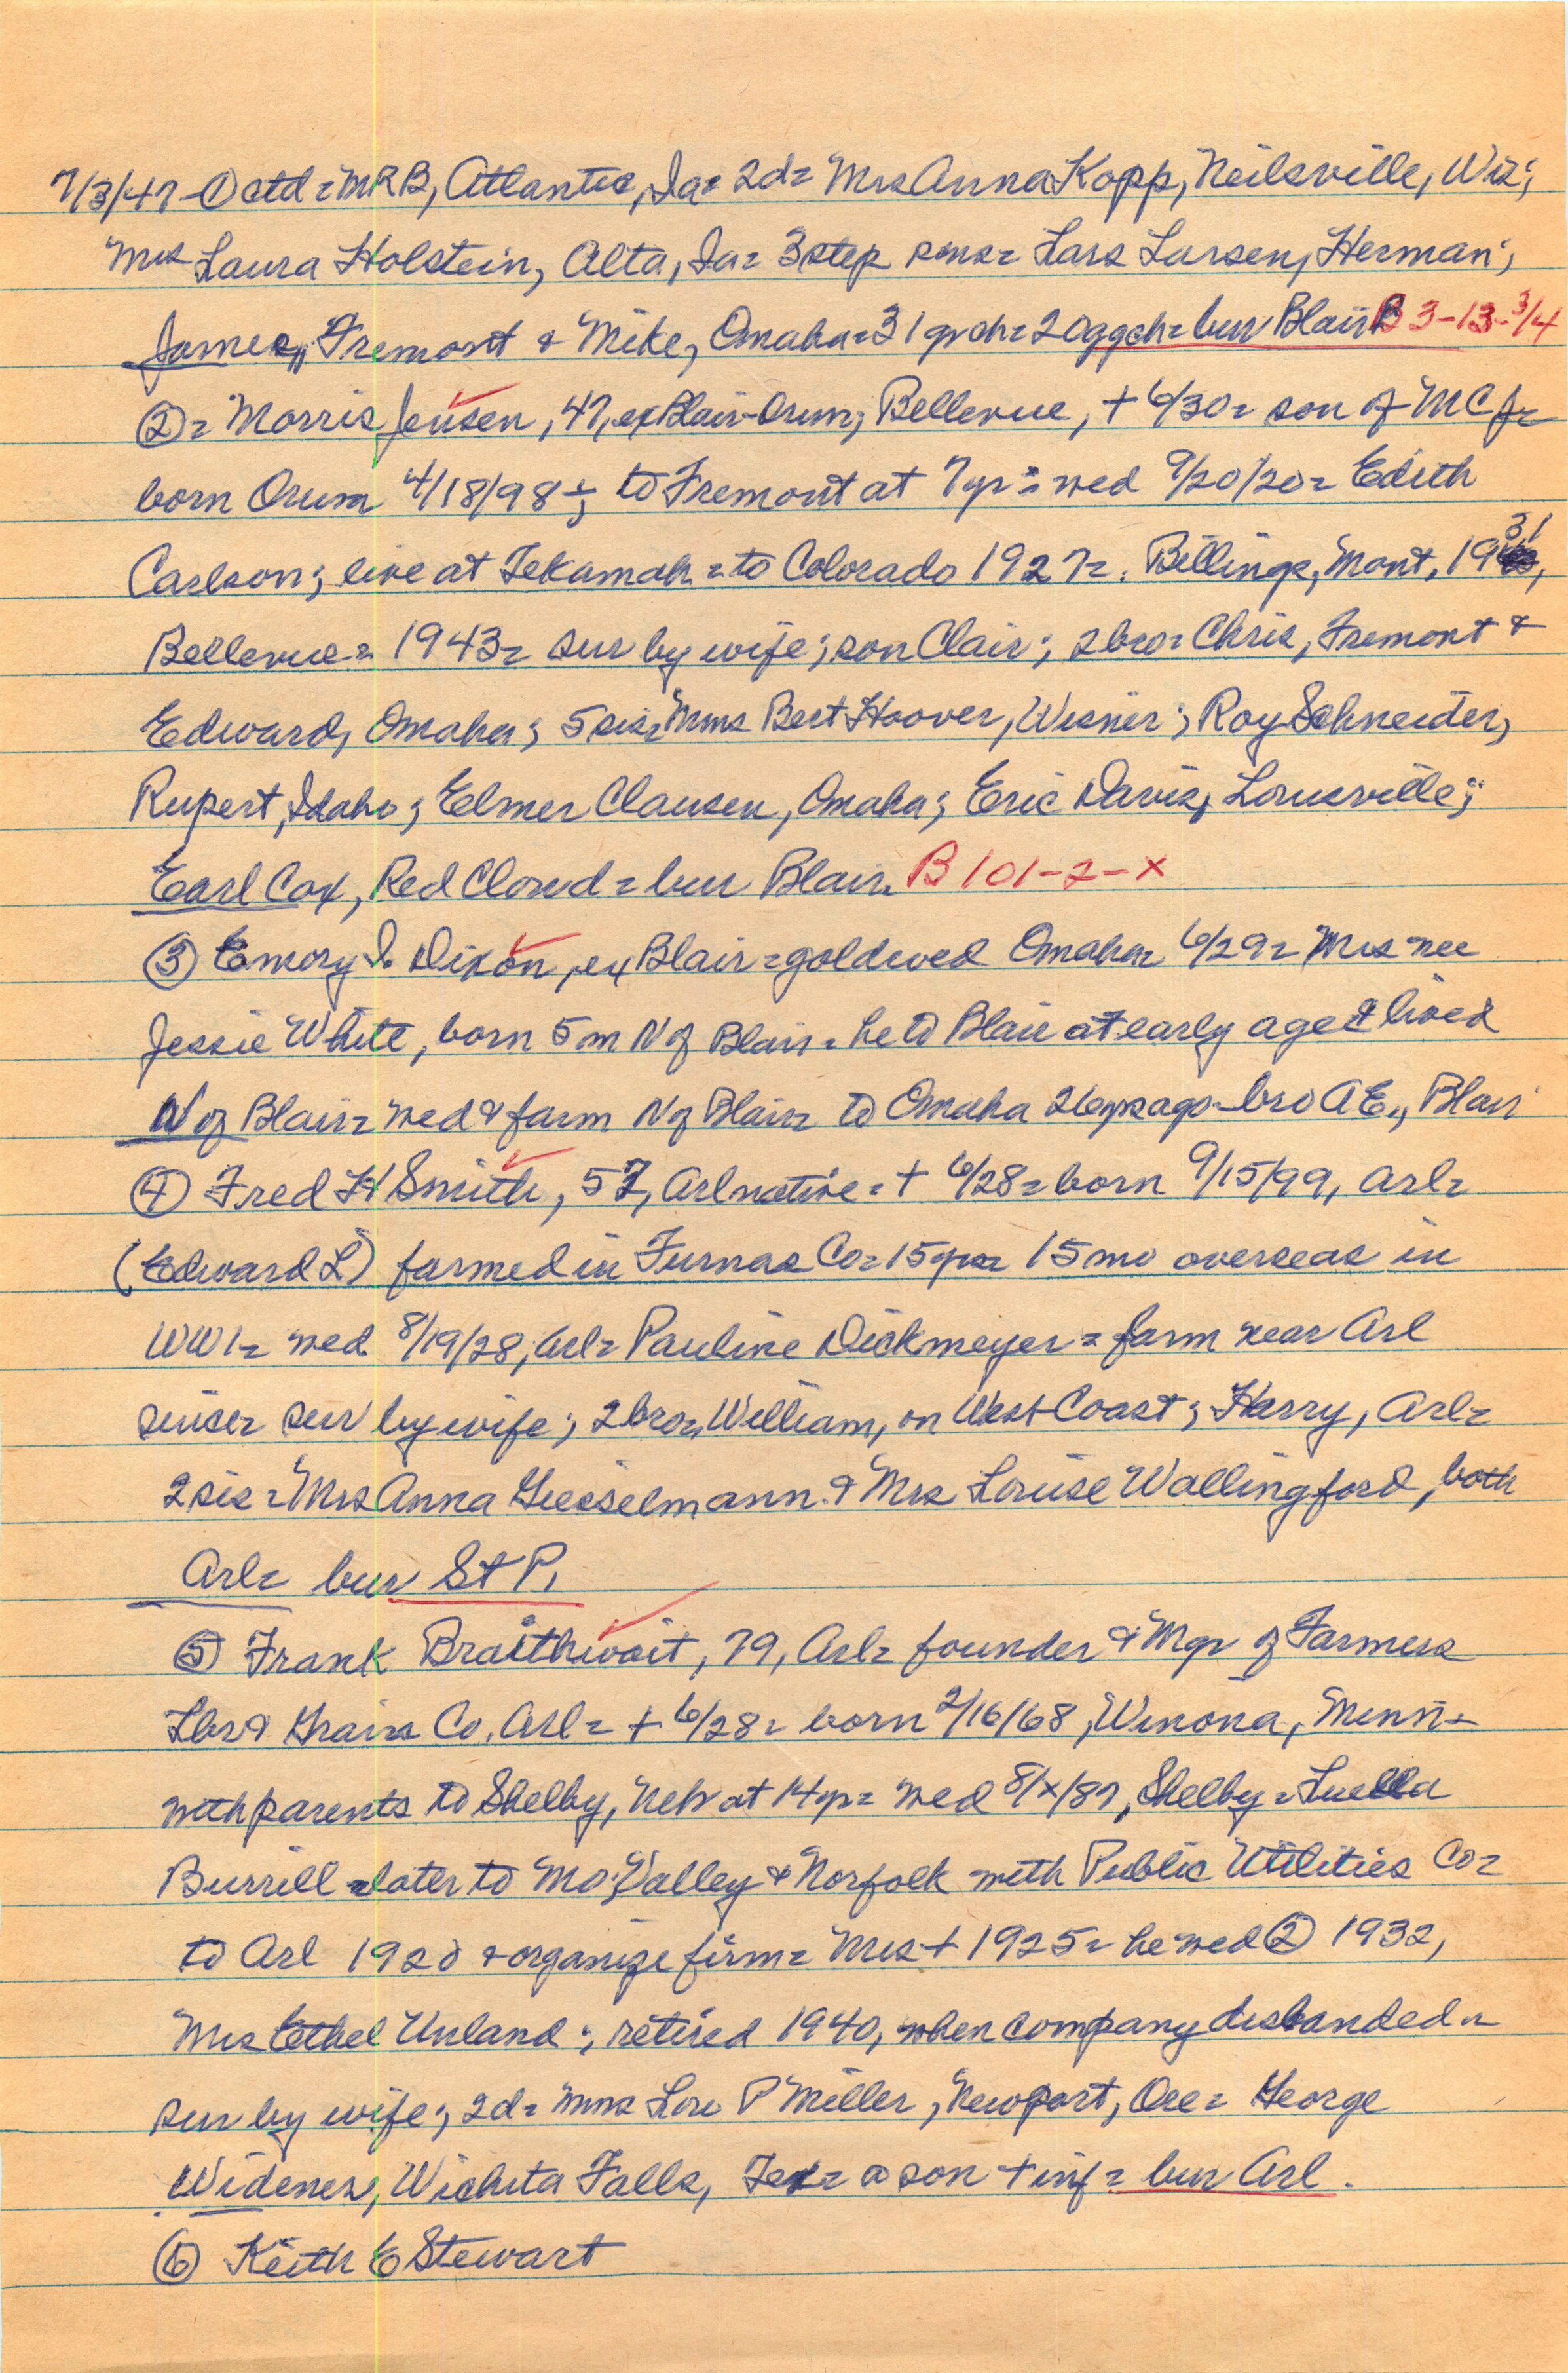 7/3/47 - ① ctd = MRB, Atlantic, Ia = 2d = Mrs Anna Kopp, Neilsville, Wis;
Mrs Laura Holstein, Alta, Ia = 3 step sons = Lars Larsen, Herman;
James, Fremont & Mike, Omaha = 31 grch = 20 ggch = bur Blair B 3-13-3/4
② = Morris Jensen, 47, ex Blair-Orum, Bellevue, + 6/30 = son of MC J =
born Orum 4/18/98 ; to Fremont at 7 yr = wed 9/20/20 = Edith
Carlson; live at Tekamah = to Colorado 1927 = Billings, Mont, 1931,
Bellevue = 1943 = sur by wife; son Clair; 2 bro = Chris, Fremont &
Edward, Omaha; 5 sis = Mms Bert Hoover, Wisner; Roy Schneider,
Rupert, Idaho; Elmer Clausen, Omaha; Eric Davis, Louisville;
Earl Cox, Red Cloud = bur Blair. B 101-2-X
③ Emory I. Dixon, ex Blair = gold wed Omaha = 6/29 = Mrs nee
Jessie White, born 5 m N of Blair = he to Blair at early age & lived
N of Blair = wed & farm N of Blair = to Omaha 26 yrs ago - bro A E., Blair
④ Fred H Smith, 57, Arl native = + 6/28 = born 9/15/99, Arl =
(Edward L) farmed in Furnas Co = 15 yrs = 15 mo overseas in
WW1 = wed 8/19/28, Arl = Pauline Dickmeyer = farm near Arl
since = sur by wife; 2 bro = William, on West Coast; Harry, Arl =
2 sis = Mrs Anna Gieselmann & Mrs Louise Wallingford, both
Arl = bur St P.
⑤ Frank Braithwait, 79, Arl = founder & Mgr of Farmers
Lbr & Grain Co. Arl = + 6/28 = born 2/16/68, Winona, Minn =
with parents to Shelby, Neb at 14 yr = wed 8/x/87, Shelby = Luella
Burrill = later to Mo. Valley & Norfolk with Public Utilities Co =
to Arl 1920 & organize firm = Mrs + 1925 = he wed ② 1932,
Mrs Ethel Unland; retired 1940, when company disbanded =
sur by wife; 2d = Mms Lou P Miller, Newport, Ore = George
Widener, Wichita Falls, Tex = a son + inf = bur Arl.
⑥ Keith E Stewart